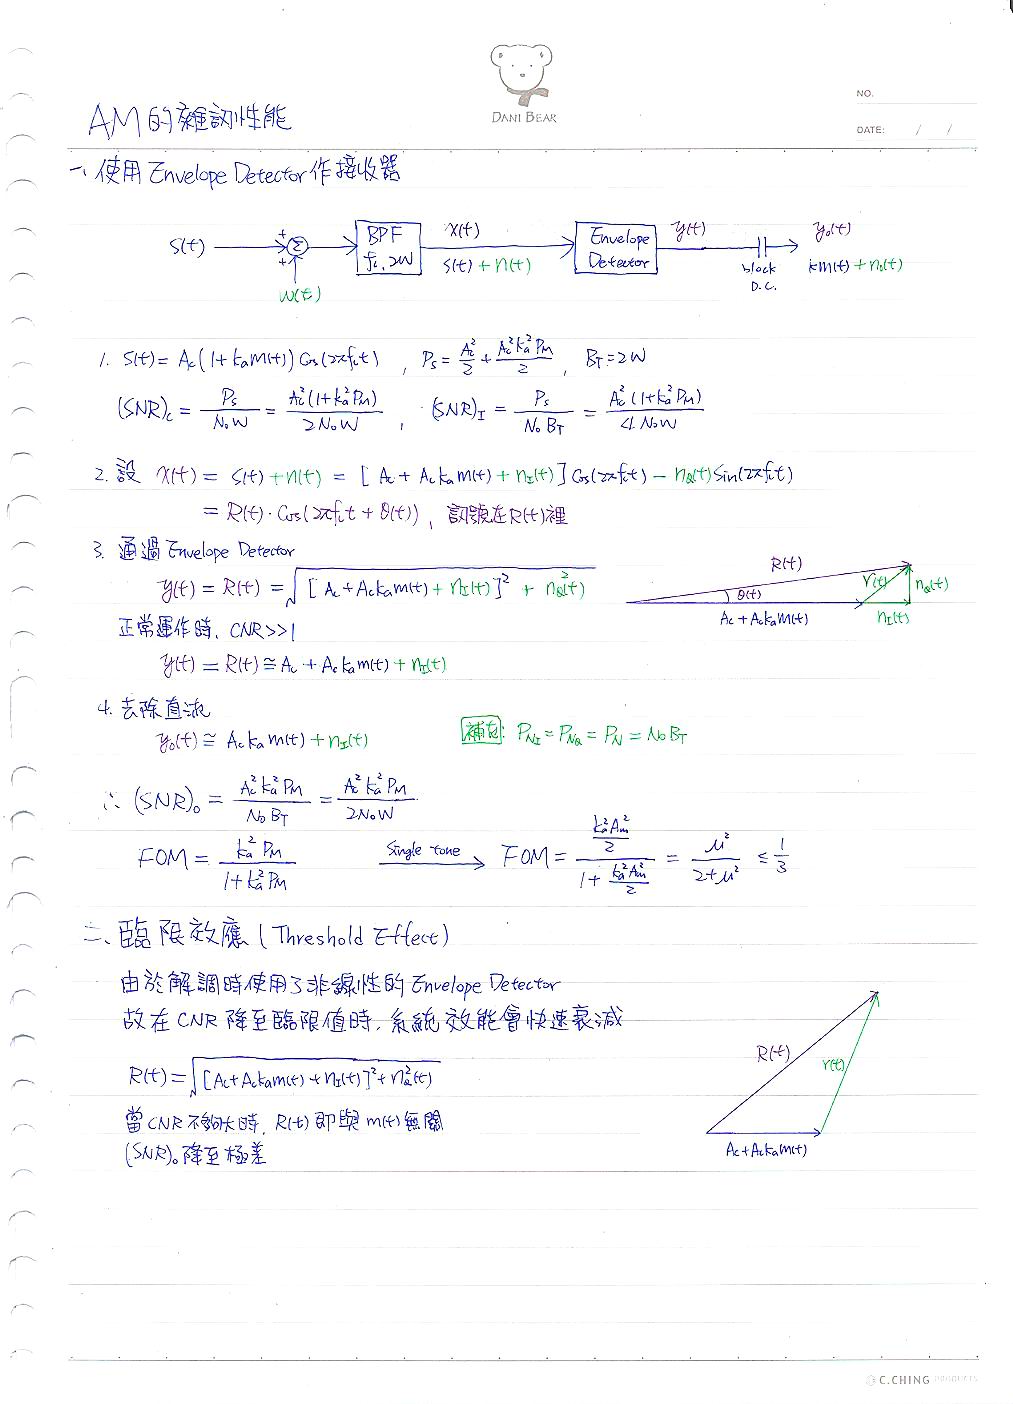 DANI BEAR
NO.
DATE: / /
AM的雜訊性能
一、使用Envelope Detector作接收器
S(t) + Σ + W(t) BPF fc, 2W x(t) S(t)+n(t) Envelope Detector y(t) block D.C. y₀(t) km(t)+n₀(t)
1. S(t)= Ac(1+kam(t))Cos(2πfct) , Ps= Ac²/2 + Ac²ka²PM/2 , BT=2W
(SNR)c = Ps/N₀W = Ac²(1+ka²PM)/2N₀W , (SNR)I = Ps/N₀BT = Ac²(1+ka²PM)/4N₀W
2. 設 x(t) = S(t)+n(t) = [Ac + Ackam(t)+nI(t)]Cos(2πfct) − nQ(t)Sin(2πfct)
= R(t)·Cos(2πfct + θ(t)) , 訊號在R(t)裡
3. 通過Envelope Detector
y(t) = R(t) = √([Ac+Ackam(t)+nI(t)]² + nQ²(t))
R(t) r(t) nQ(t) θ(t) Ac+Ackam(t) nI(t)
正常運作時, CNR>>1
y(t) = R(t) ≅ Ac + Ackam(t)+nI(t)
4. 去除直流
y₀(t) ≅ Ackam(t)+nI(t)
補充: PNI = PNQ = PN = N₀BT
∴ (SNR)₀ = Ac²ka²PM/N₀BT = Ac²ka²PM/2N₀W
FOM = ka²PM/1+ka²PM Single tone → FOM = (ka²Am²/2)/(1+ka²Am²/2) = μ²/2+μ² ≤ 1/3
二、臨限效應(Threshold Effect)
由於解調時使用了非線性的Envelope Detector
故在CNR降至臨限值時, 系統效能會快速衰減
R(t)=√([Ac+Ackam(t)+nI(t)]²+nQ²(t))
R(t) r(t) Ac+Ackam(t)
當CNR不夠大時, R(t)即與m(t)無關
(SNR)₀降至極差
C.CHING PRODUCTS